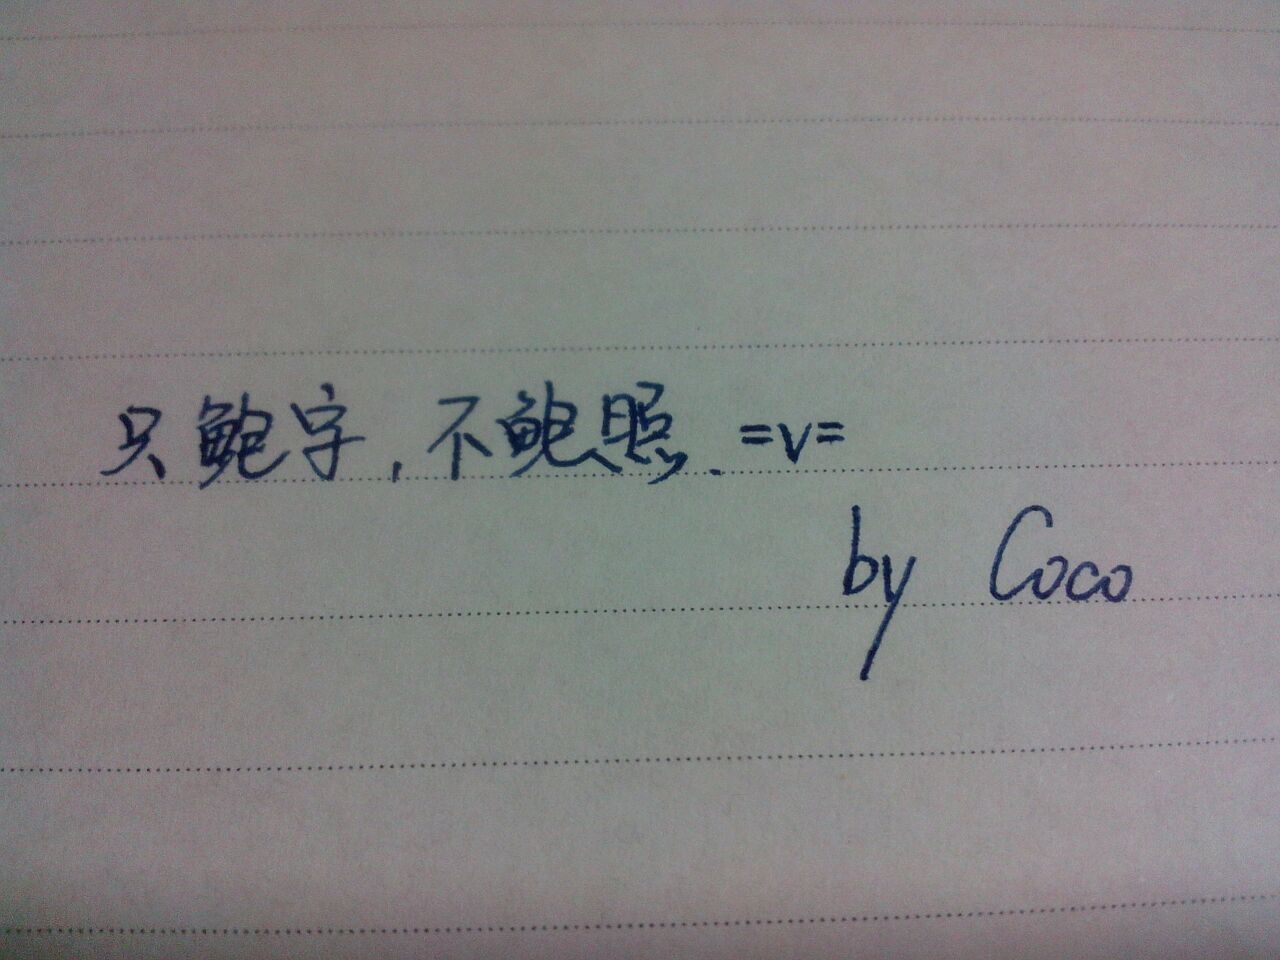 只鲍字,不鲍照.=v=
by Coco